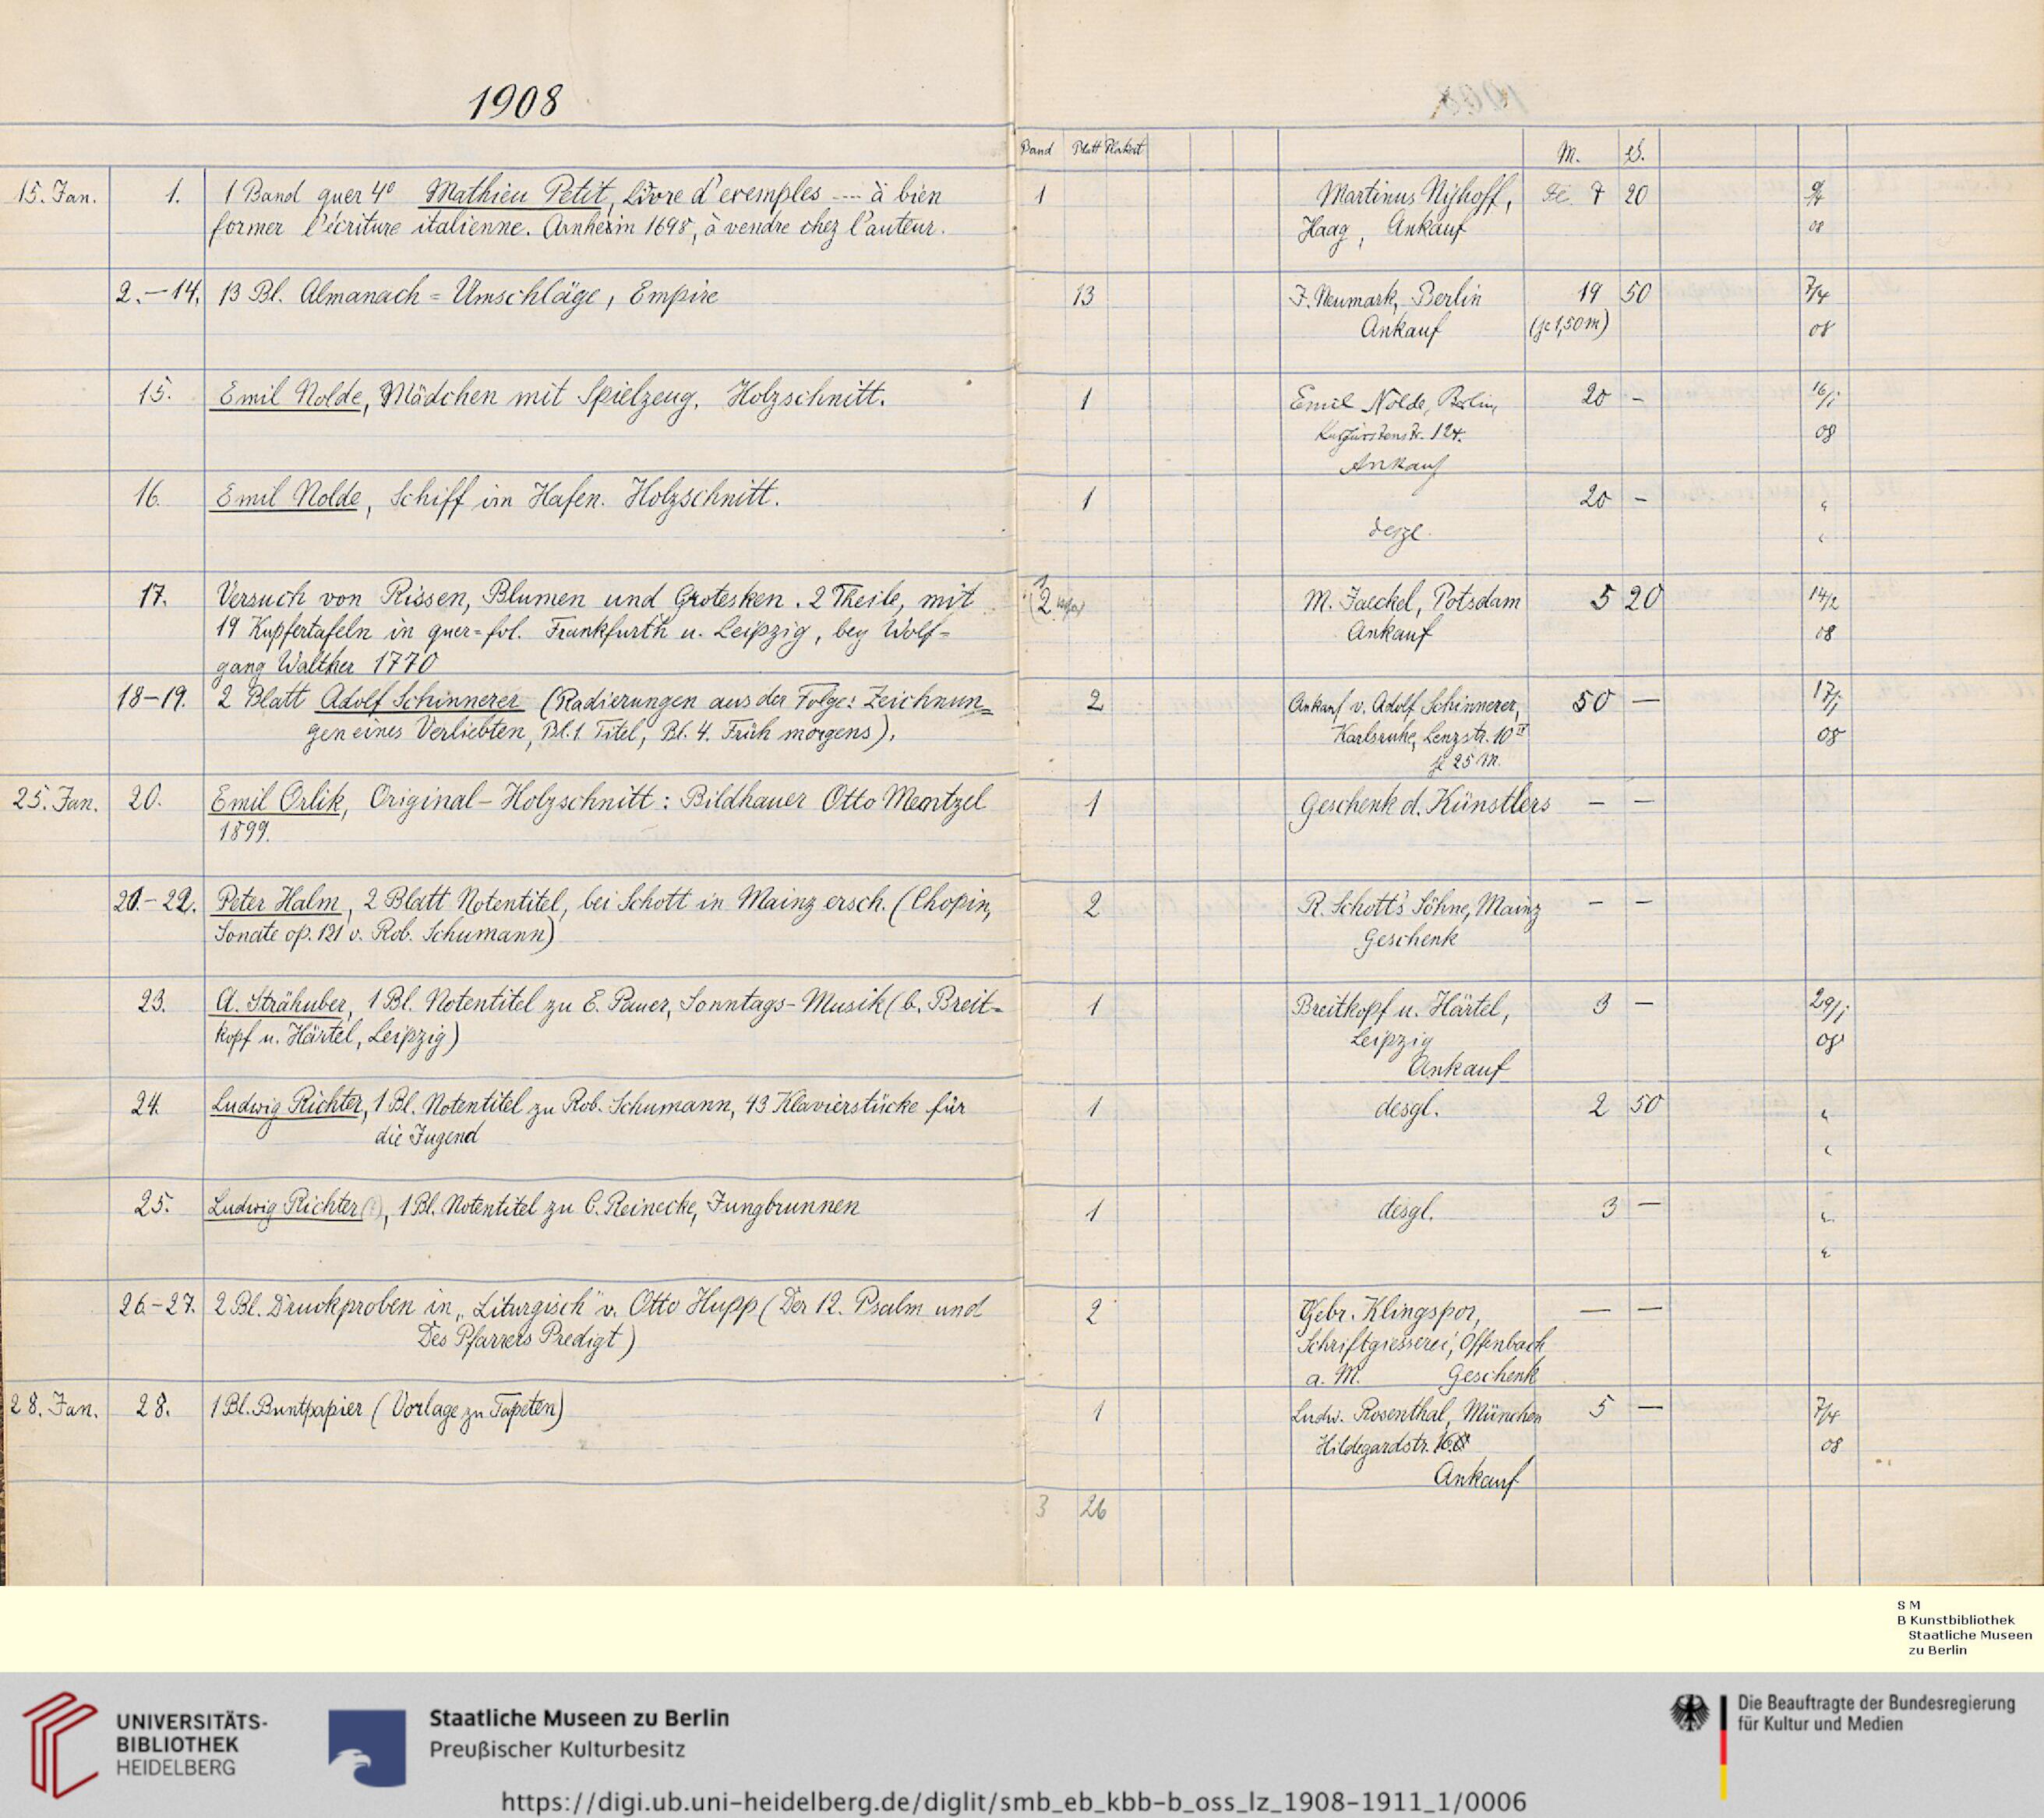 1908
Band Blatt Plakat M. ₰.
15. Jan. 1. 1 Band quer 4° Mathieu Petit, Livre d'exemples ---- à bien 1 Martinus Nijhoff, 7 20
former l'écriture italienne. Arnheim 1698, à vendre chez l'auteur. Haag, Ankauf 08
2.–14. 13 Bl. Almanach=Umschläge, Empire 13 F. Neumark, Berlin 19 50 7/4
Ankauf (je 1,50 M) 08
15. Emil Nolde, Mädchen mit Spielzeug. Holzschnitt. 1 Emil Nolde, Berlin, 20 – 16/1
Kurfürstenstr. 124. 08
Ankauf
16. Emil Nolde, Schiff im Hafen. Holzschnitt. 1 20 – "
desgl. "
17. Versuch von Rissen, Blumen und Grotesken. 2 Theile, mit 2 M. Jaeckel, Potsdam 5 20 14/2
19 Kupfertafeln in quer=fol. Frankfurth u. Leipzig, bey Wolf= Ankauf 08
gang Walther 1770
18–19. 2 Blatt Adolf Schinnerer (Radierungen aus der Folge: Zeichnun= 2 Ankauf v. Adolf Schinnerer, 50 — 17/1
gen eines Verliebten, Bl. 1. Titel, Bl. 4. Früh morgens). Karlsruhe, Lenzstr. 10 II 08
je 25 M.
25. Jan. 20. Emil Orlik, Original-Holzschnitt: Bildhauer Otto 1 Geschenk d. Künstlers – –
1899.
21.–22. Peter Halm, 2 Blatt Notentitel, bei Schott in Mainz ersch. (Chopin, 2 R. Schott's Söhne, Mainz – –
Sonate op. 121 v. Rob. Schumann) Geschenk
23. A. Strähuber, 1 Bl. Notentitel zu E. Pauer, Sonntags-Musik (b. Breit= 1 Breitkopf u. Härtel, 3 – 29/1
kopf u. Härtel, Leipzig) Leipzig 08
Ankauf
24. Ludwig Richter, 1 Bl. Notentitel zu Rob. Schumann, 43 Klavierstücke für 1 desgl. 2 50 "
die Jugend "
25. Ludwig Richter (?), 1 Bl. Notentitel zu C. Reinecke, Jungbrunnen 1 desgl. 3 – "
"
26.–27. 2 Bl. Druckproben in „Liturgisch" v. Otto Hupp (Der 12. Psalm und 2 Gebr. Klingspor, — —
Des Pfarrers Predigt) Schriftgiesserei, Offenbach
a. M. Geschenk
28. Jan. 28. 1 Bl. Buntpapier (Vorlage zu Tapeten) 1 Ludw. Rosenthal, München 5 — 7/4
Hildegardstr. 08
Ankauf
3 26
S M
B Kunstbibliothek
Staatliche Museen
zu Berlin
UNIVERSITÄTS-
BIBLIOTHEK
HEIDELBERG
Staatliche Museen zu Berlin
Preußischer Kulturbesitz
Die Beauftragte der Bundesregierung
für Kultur und Medien
https://digi.ub.uni-heidelberg.de/diglit/smb_eb_kbb-b_oss_lz_1908-1911_1/0006